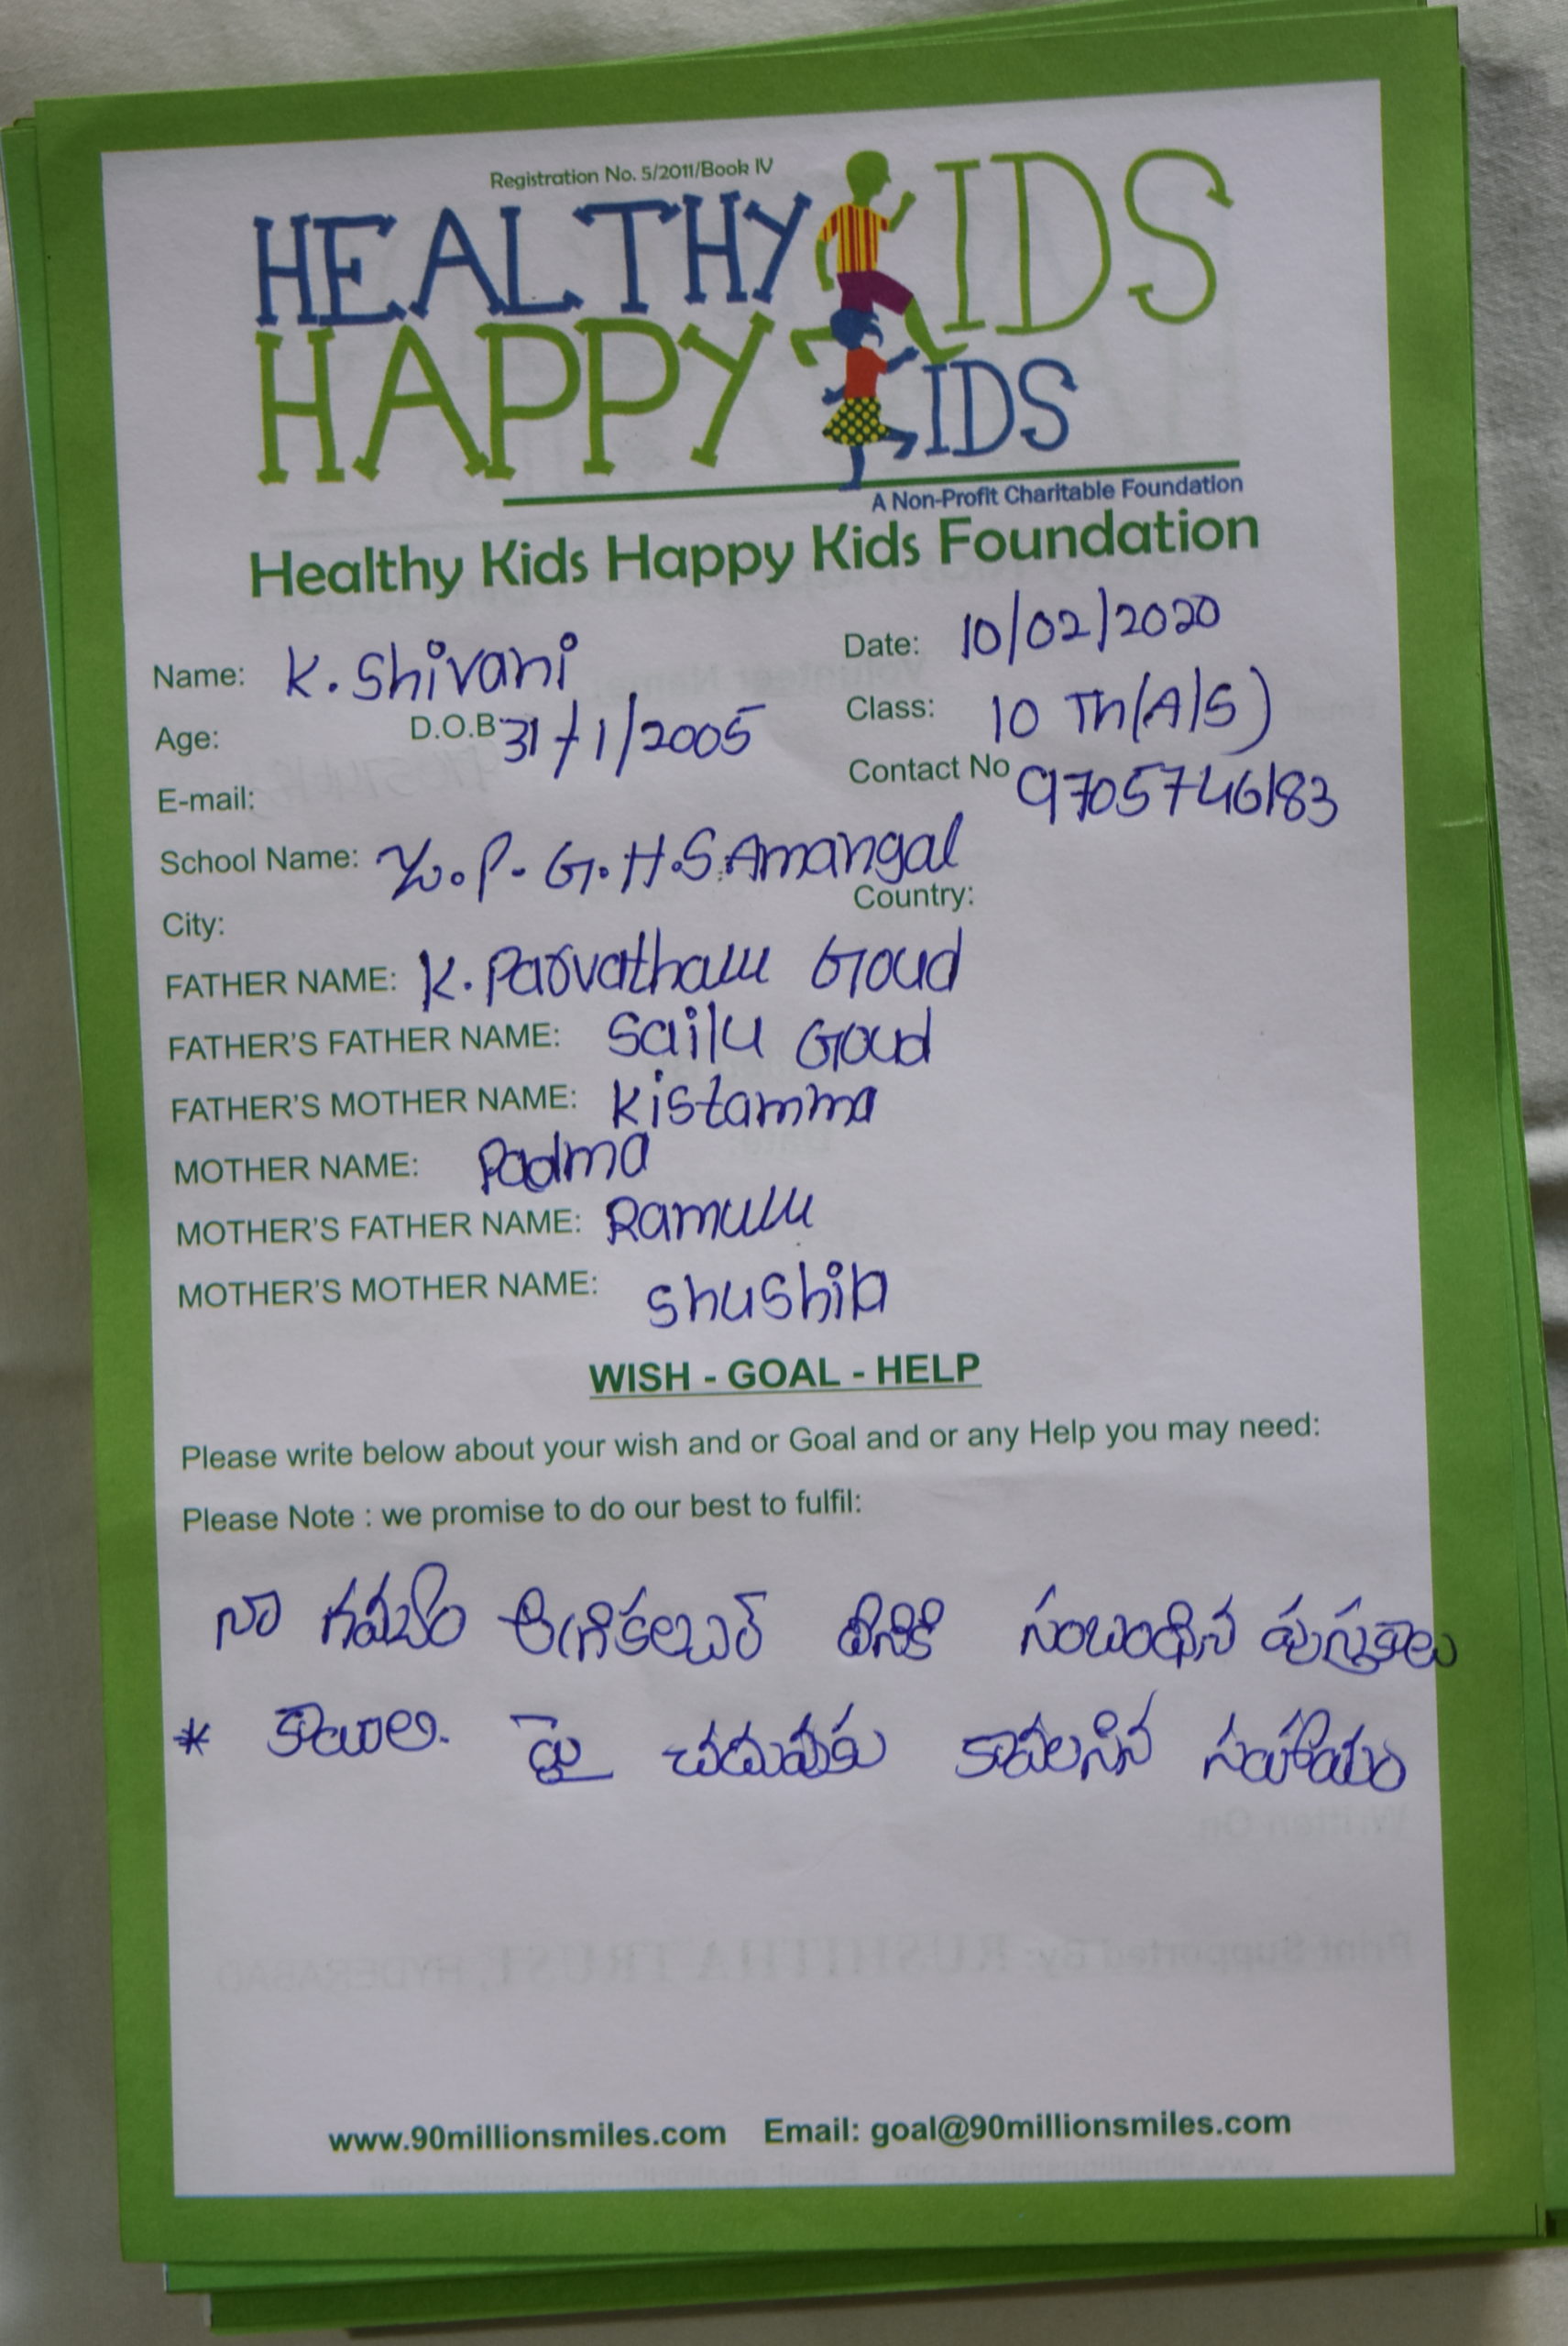 Registration No. 5/2011/Book IV
HEALTHY KIDS
HAPPY KIDS
A Non-Profit Charitable Foundation
Healthy Kids Happy Kids Foundation
Name: K. Shivani Date: 10/02/2020
Age: D.O.B 31/1/2005 Class: 10 Th(A/S)
E-mail: Contact No 9705746183
School Name: Z.P. G.H.S. Amangal
City: Country:
FATHER NAME: K. Parvathalu Goud
FATHER'S FATHER NAME: Sailu Goud
FATHER'S MOTHER NAME: Kistamma
MOTHER NAME: Padma
MOTHER'S FATHER NAME: Ramulu
MOTHER'S MOTHER NAME:
WISH - GOAL - HELP
Please write below about your wish and or Goal and or any Help you may need:
Please Note : we promise to do our best to fulfil:
నా గమ్యం అగ్రికల్చర్ దీనికి సంబంధిన పుస్తకాలు
* కావాలి. పై చదువుకు కావలసిన సహాయం
www.90millionsmiles.com Email: goal@90millionsmiles.com